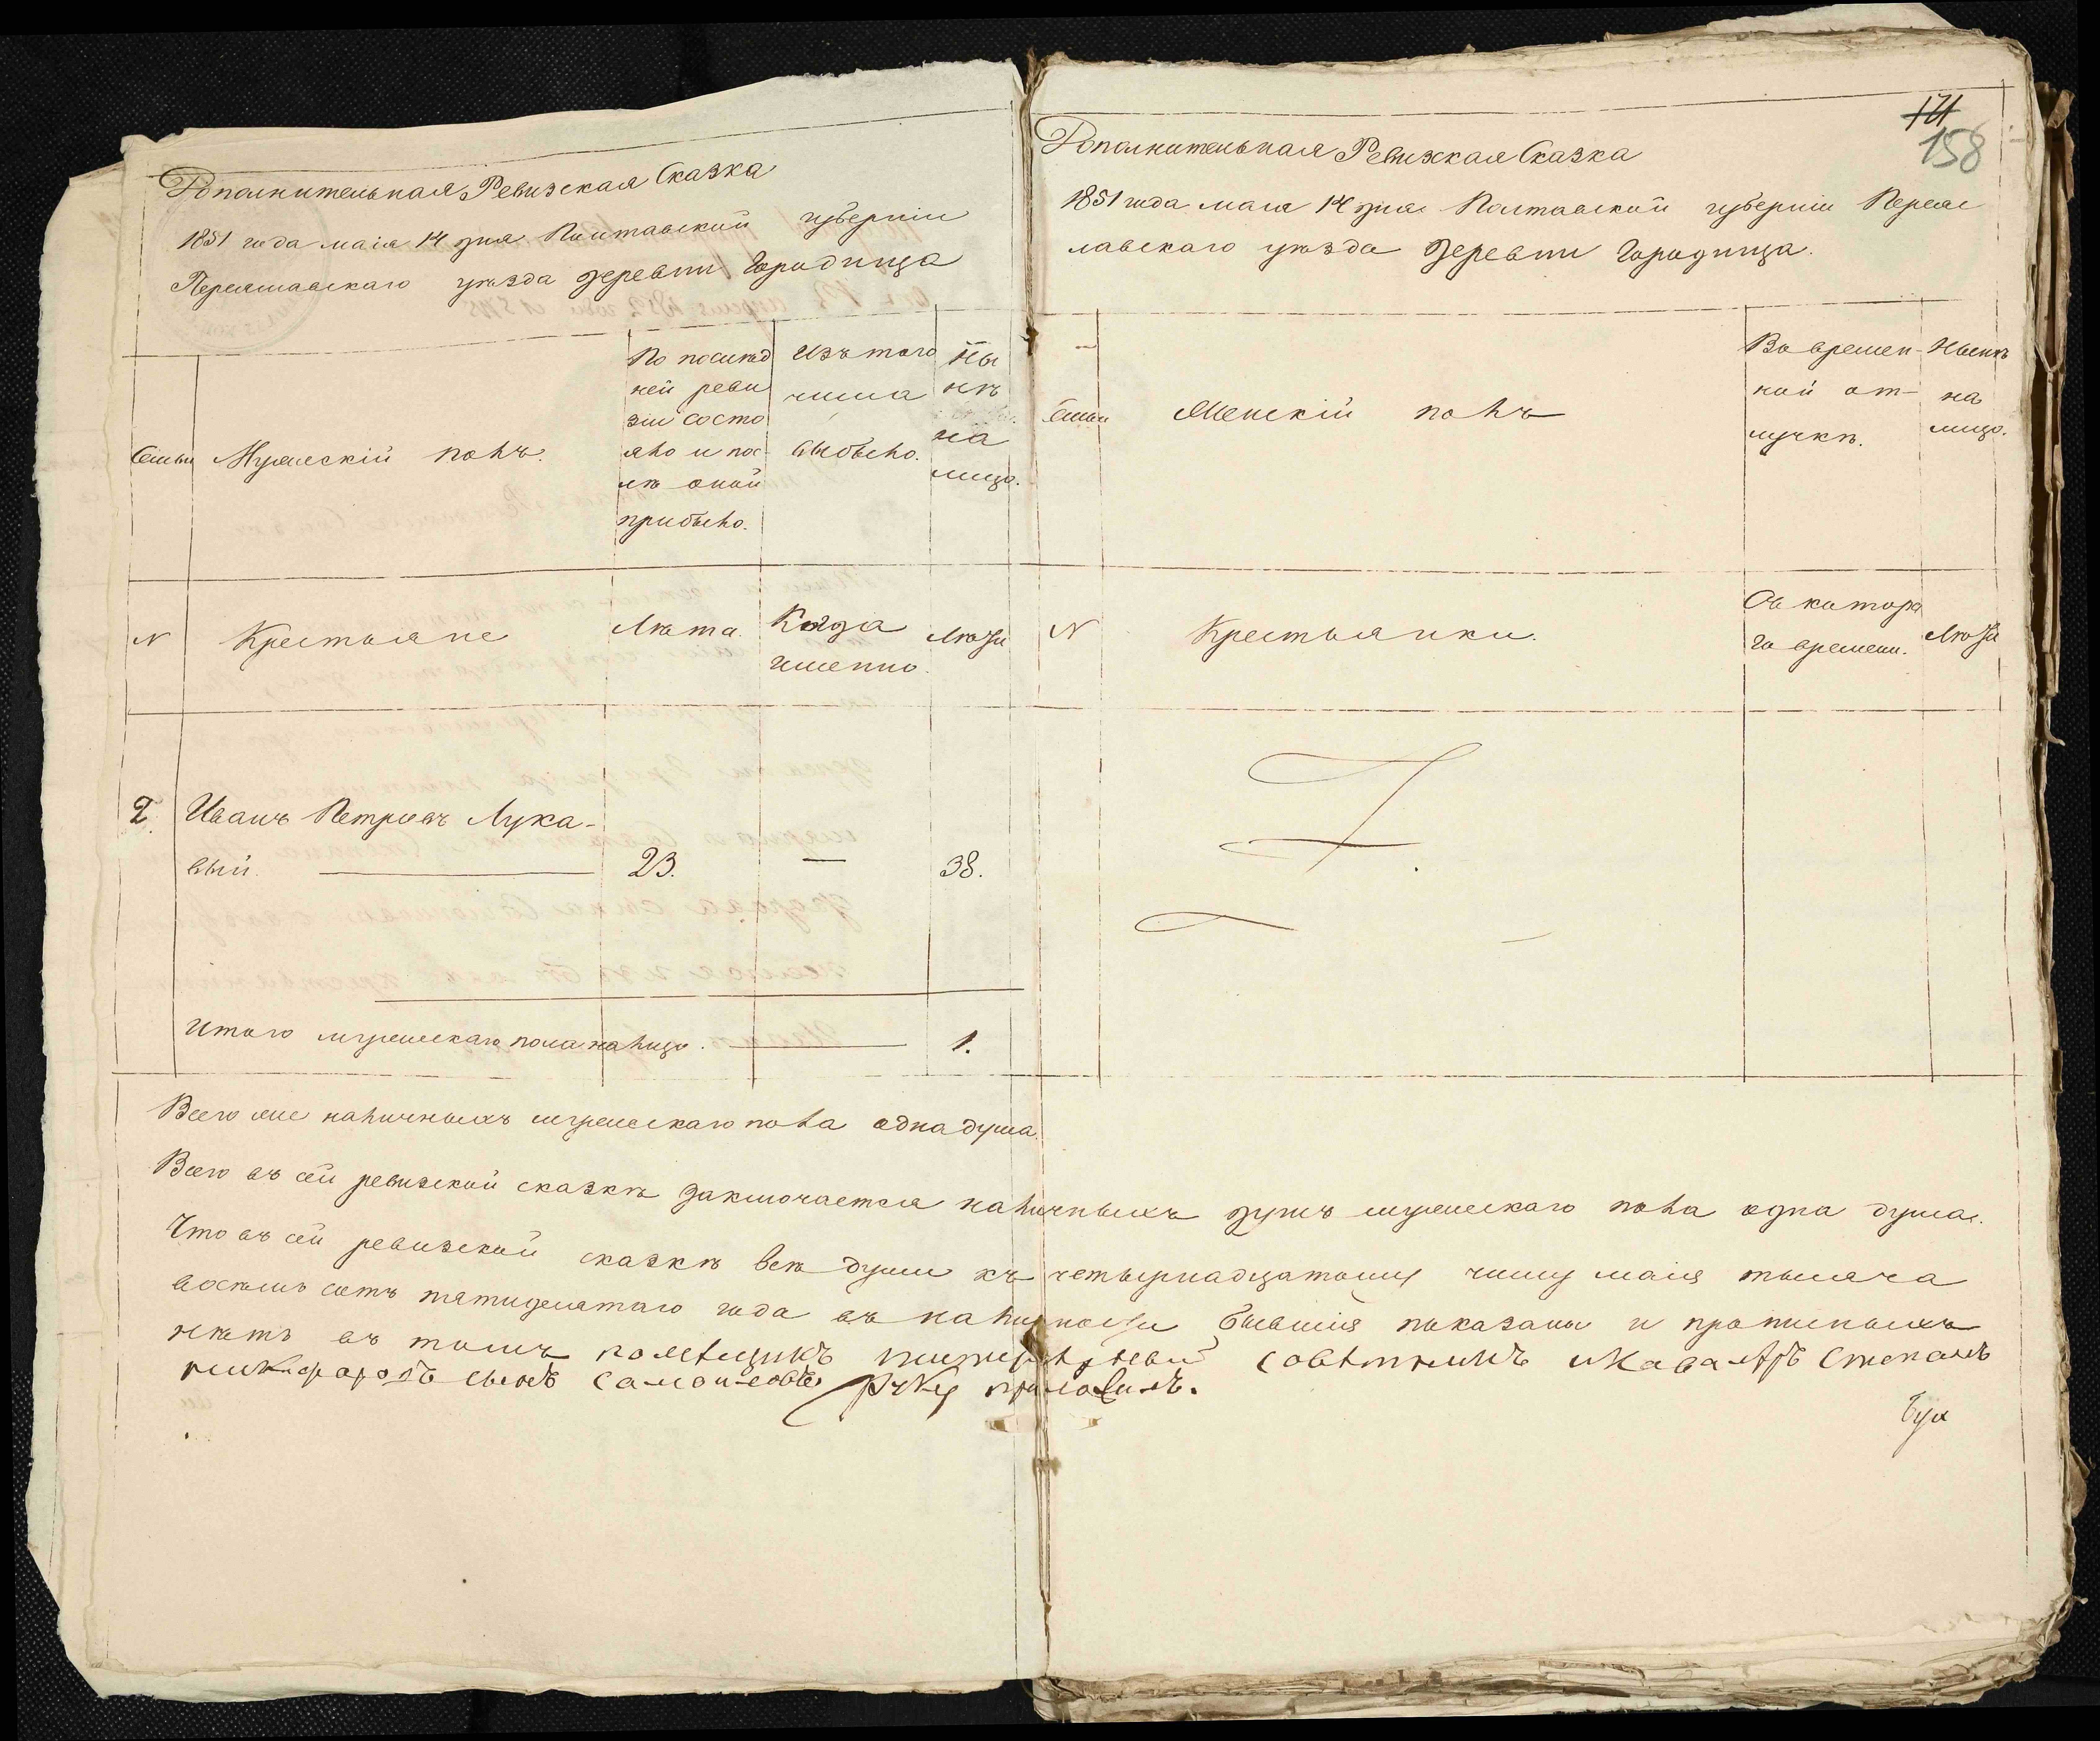 Дополнительная Ревизская Сказка
1851 года маія 14 дня Полтавской губерніи
Переяславскаго уѣзда деревни Городища
Семьи
Мужескій полъ.
По послѣд
ней реви
зіи состо
яло и пос-
лѣ оной
прибыло.
Изъ того
числа
выбыло.
Ны
нѣ
на
лицо.
N
Крестьяне
Лѣта.
Когда
именно.
Лѣта
2.
Иванъ Петровъ Лука-
вый.
23.
—
38.
Итого мужескаго пола налицо.
1.
171
158
Дополнительная Ревизская Сказка
1851 года маія 14 дня Полтавской губерніи Переяс
лавскаго уѣзда деревни Городища.
Семьи
Женскій полъ
Во времен-
ной от-
лучкѣ.
Нынѣ
на
лицо.
N
Крестьянки.
Съ котора
го времени.
Лѣта
Всего же наличныхъ мужескаго пола одна душа.
Всего въ сей ревизской сказкѣ заключается наличныхъ душъ мужескаго пола одна душа.
Что въ сей ревизской сказкѣ всѣ души къ четырнадцатому числу маія тысяча
восемь сотъ пятидесятаго года въ наличности бывшія показаны и прописныхъ
нѣтъ въ томъ помѣщикъ совѣтникъ икавалѣръ Степанъ
никифоровъ сынъ Самойловъ руку приложилъ.